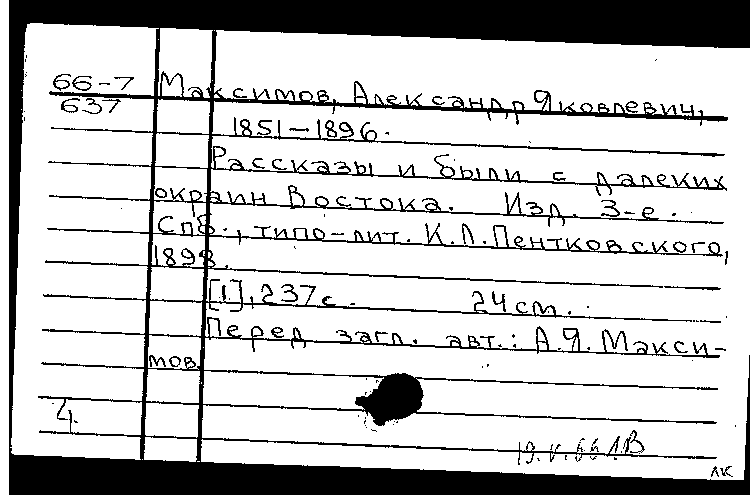 66-7 Максимов, Александр Яковлевич,
637
1851-1896.
Рассказы и были с далеких
окраин Востока. Изд. 3-е.
Спб., типо-лит. К.Л.Пентковского,
1898.
[1], 237с. 24см.
Перед загл. авт.: А.Я. Макси-
мов.
4.
19.V.66 ЛВ
лк